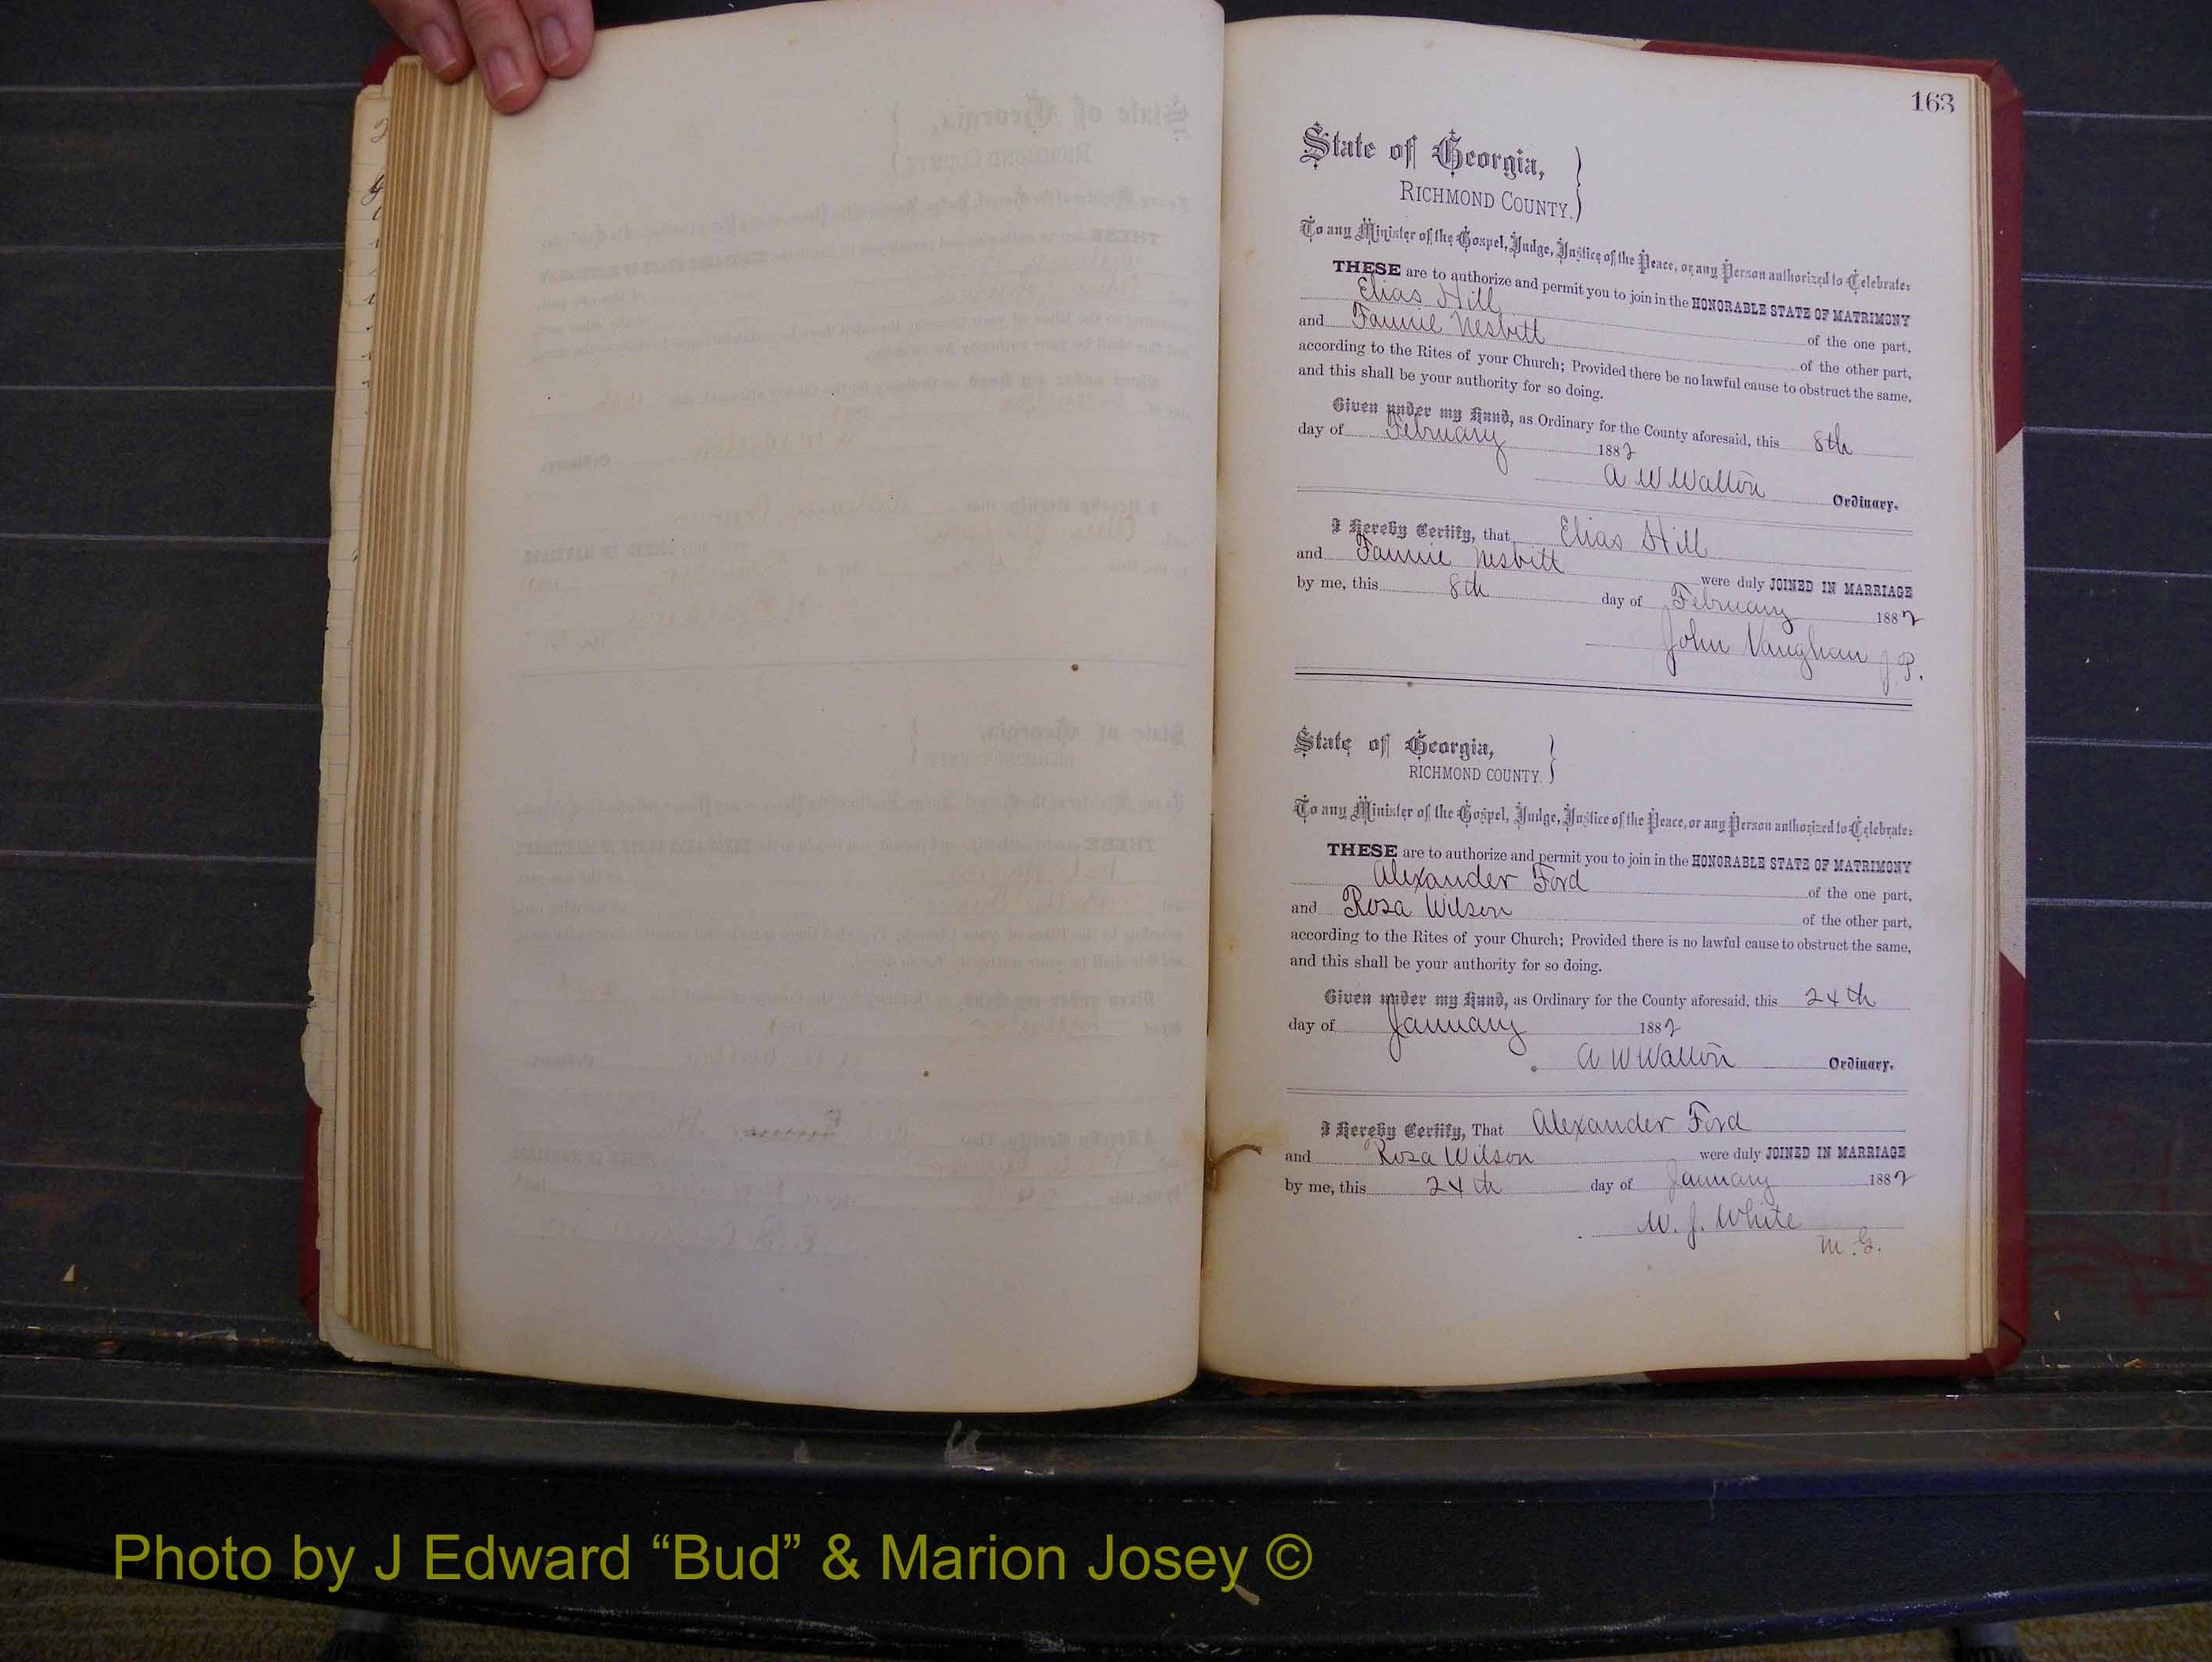 163
State of Georgia,
RICHMOND COUNTY.
To any Minister of the Gospel, Judge, Justice of the Peace, or any Person authorized to Celebrate:
THESE are to authorize and permit you to join in the HONORABLE STATE OF MATRIMONY
Elias Hill of the one part,
and Fannie Nesbitt of the other part,
according to the Rites of your Church; Provided there be no lawful cause to obstruct the same,
and this shall be your authority for so doing.
Given under my Hand, as Ordinary for the County aforesaid, this 8th
day of February 1882
A W Walton Ordinary.
I Hereby Certify, that Elias Hill
and Fannie Nesbitt were duly JOINED IN MARRIAGE
by me, this 8th day of February 1882
John Vaughan J.P.
State of Georgia,
RICHMOND COUNTY.
To any Minister of the Gospel, Judge, Justice of the Peace, or any Person authorized to Celebrate:
THESE are to authorize and permit you to join in the HONORABLE STATE OF MATRIMONY
Alexander Ford of the one part,
and Rosa Wilson of the other part,
according to the Rites of your Church; Provided there is no lawful cause to obstruct the same,
and this shall be your authority for so doing.
Given under my Hand, as Ordinary for the County aforesaid, this 24th
day of January 1882
A W Walton Ordinary.
I Hereby Certify, That Alexander Ford
and Rosa Wilson were duly JOINED IN MARRIAGE
by me, this 24th day of January 1882
W. J. White
M.G.
Photo by J Edward “Bud” & Marion Josey ©